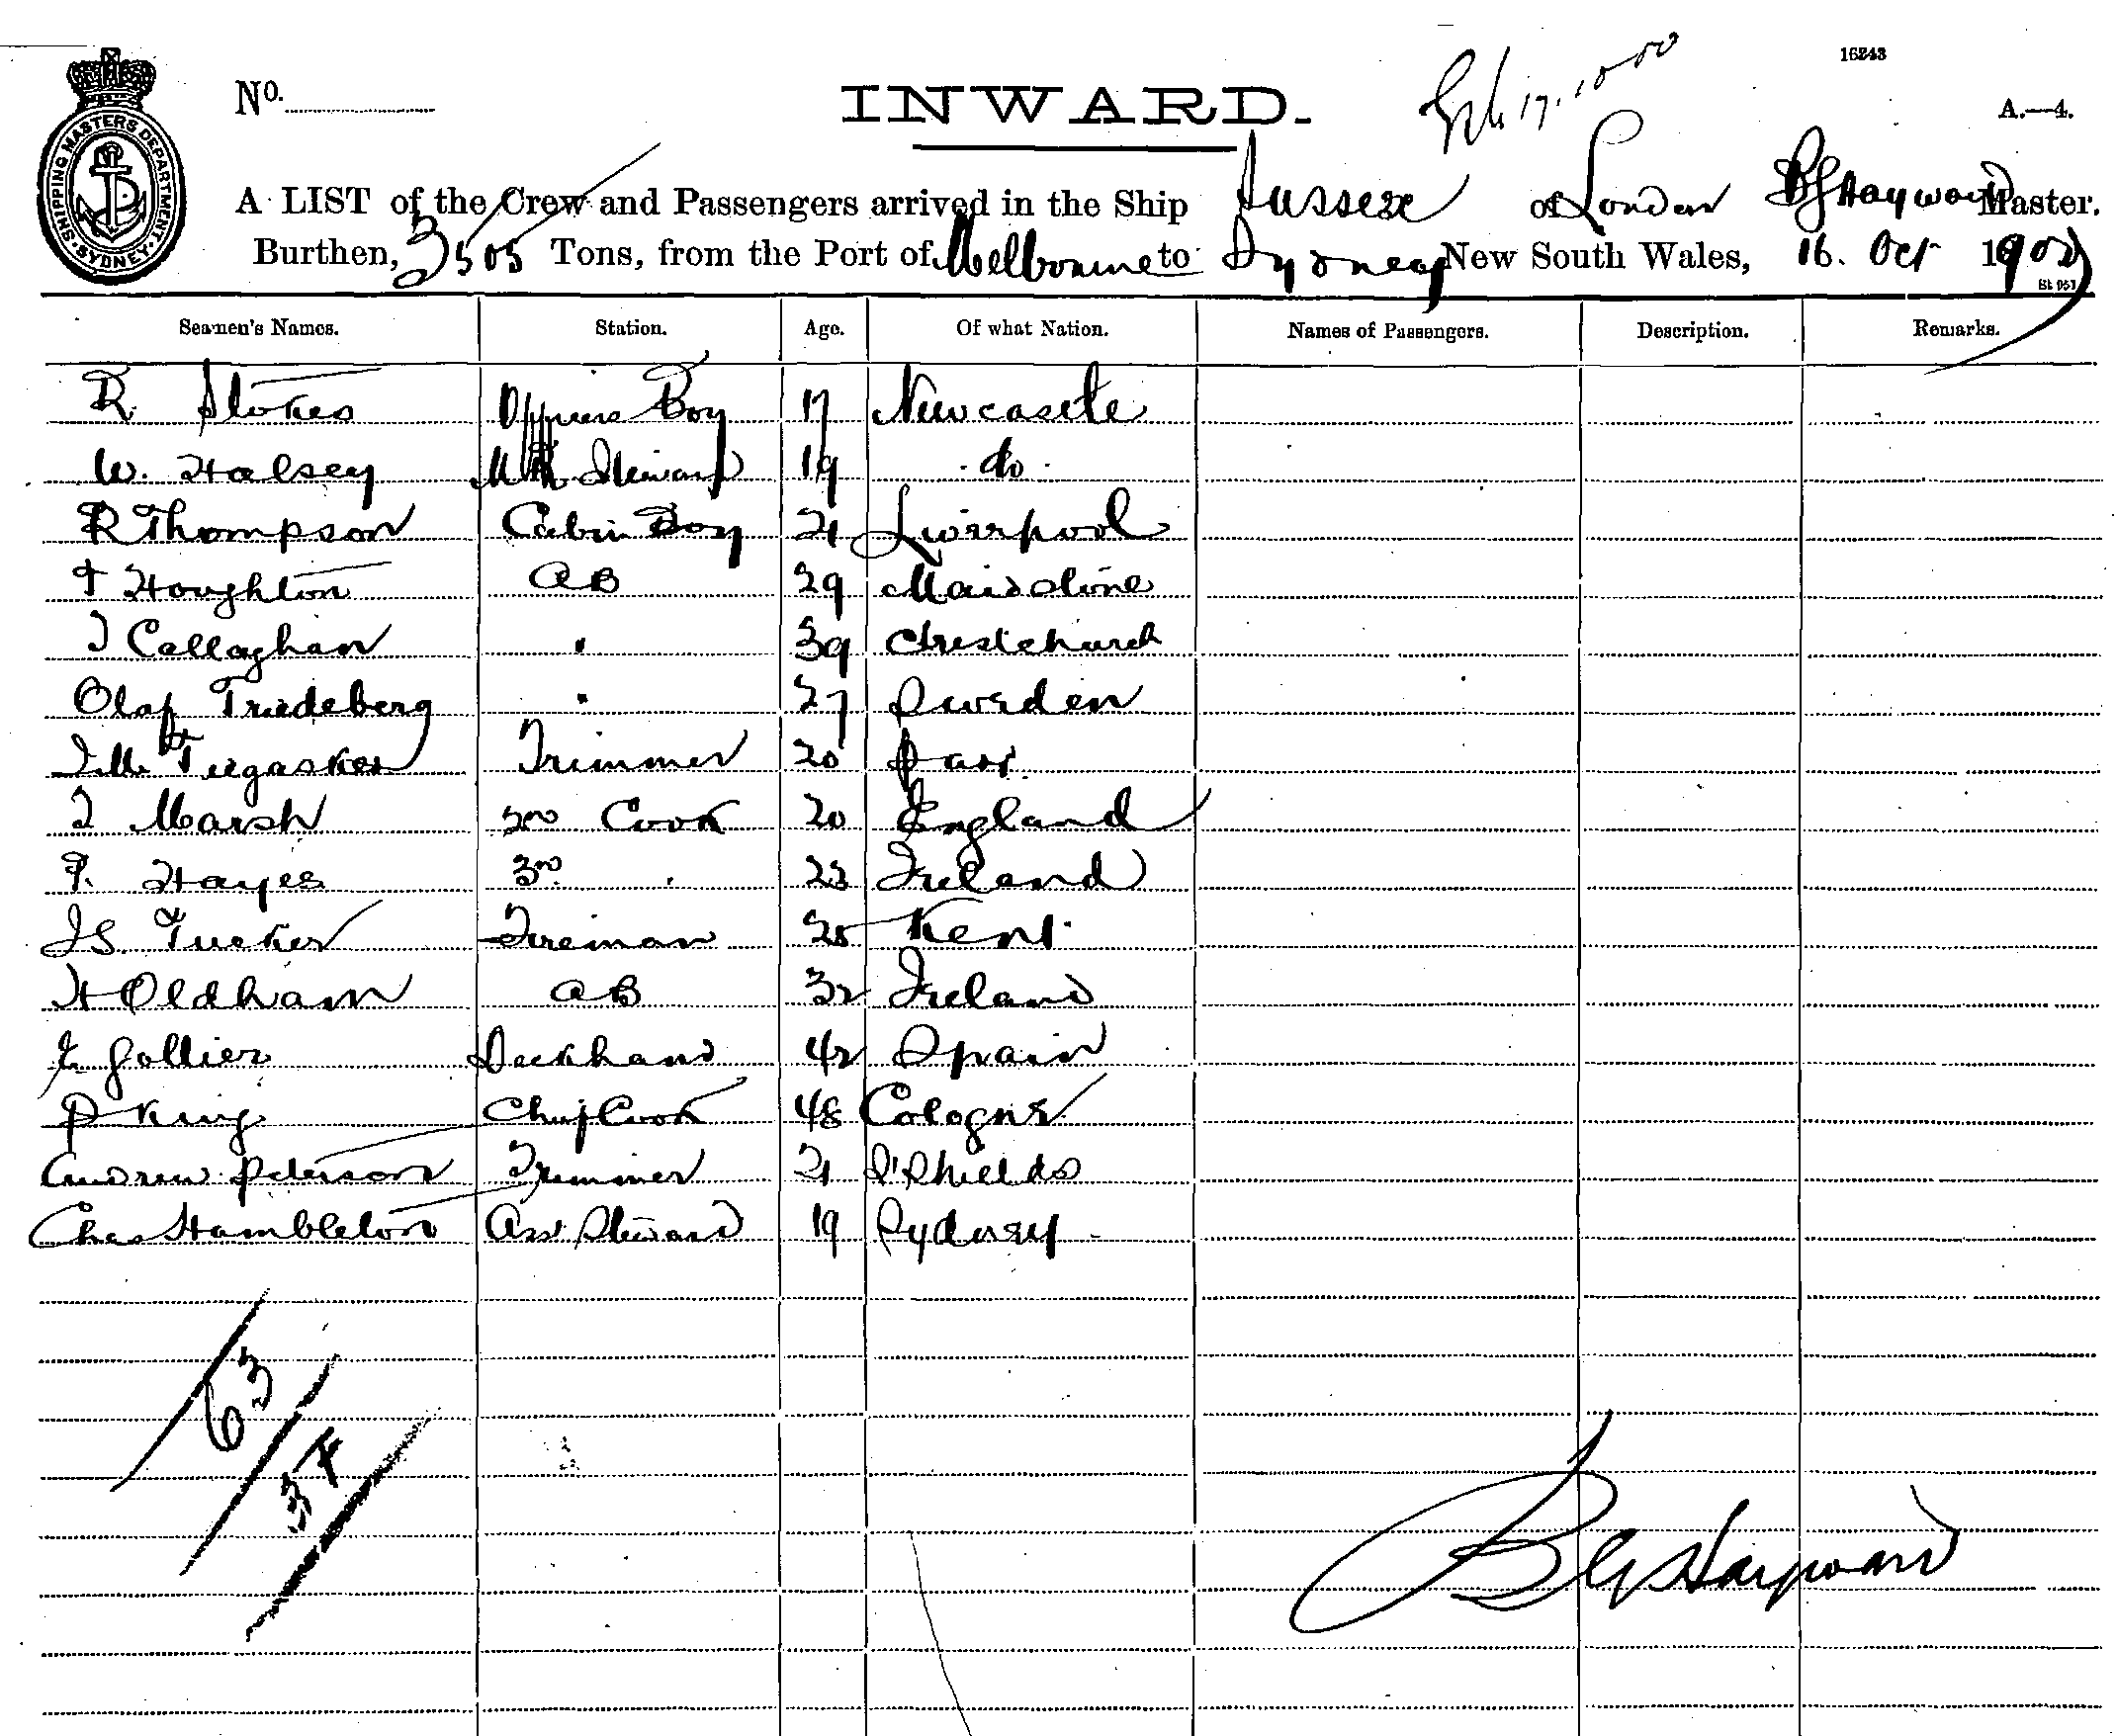 16243
No.
INWARD.
A.—4.
SHIPPING MASTERS DEPARTMENT. SYDNEY.
A LIST of the Crew and Passengers arrived in the Ship Sussex of London BG Hayward Master.
Burthen, 3505 Tons, from the Port of Melbourne to Sydney New South Wales, 16. Oct 1900
Seamen's Names. Station. Age. Of what Nation. Names of Passengers. Description. Remarks.
R Stokes Boy 17 Newcastle
W. Halsey Steward 19 do
R Thompson Cabin Boy 21 Liverpool
Houghton AB 29 Maidstone
Callaghan " 39 Christchurch
Olaf Triedeberg " 27 Sweden
Tregasker Trimmer 20
Marsh 2nd Cook 20 England
Hayes 3rd " 23 Ireland
JS Tucker Fireman 25 Kent
H Oldham AB 32 Ireland
Gollier Deckhand 42 Spain
P King Chief Cook 48 Cologne
Andrew Peterson Trimmer 21 S'Shields
Chas Hambleton Asst Steward 19 Sydney
63
37
BG Hayward